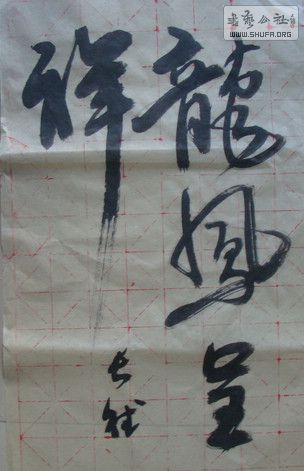 龍鳳呈
祥
書藝公社
WWW.SHUFA.ORG